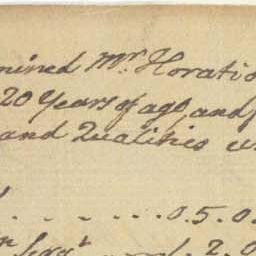 mined Mr. Horatio
20 Years of age, and
and Qualities
. . . . . . 0.5.0
Sergt